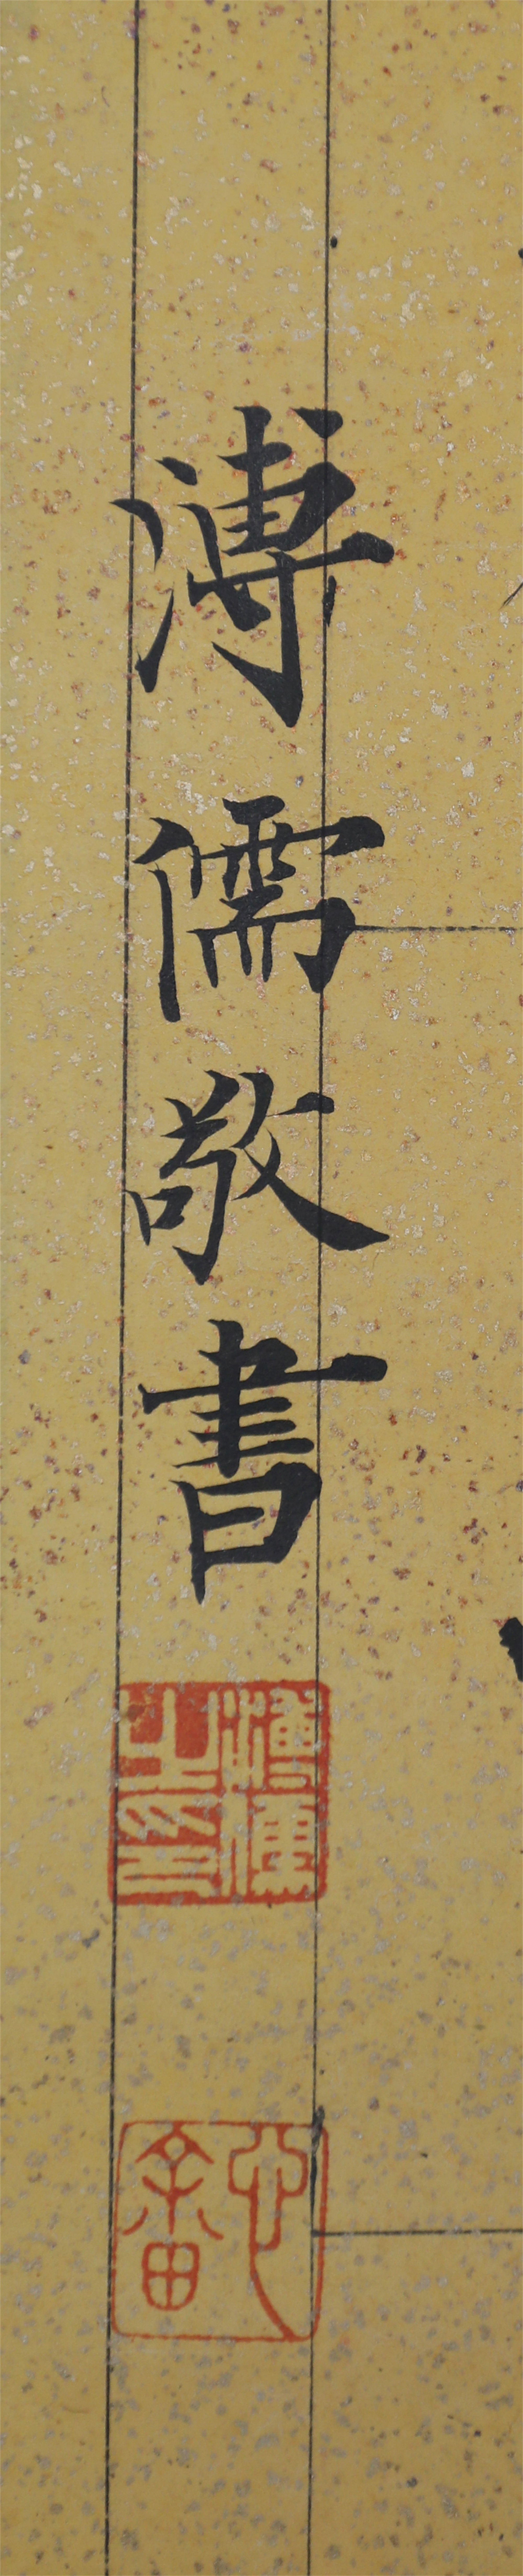 溥儒敬書
溥儒之印
心畬